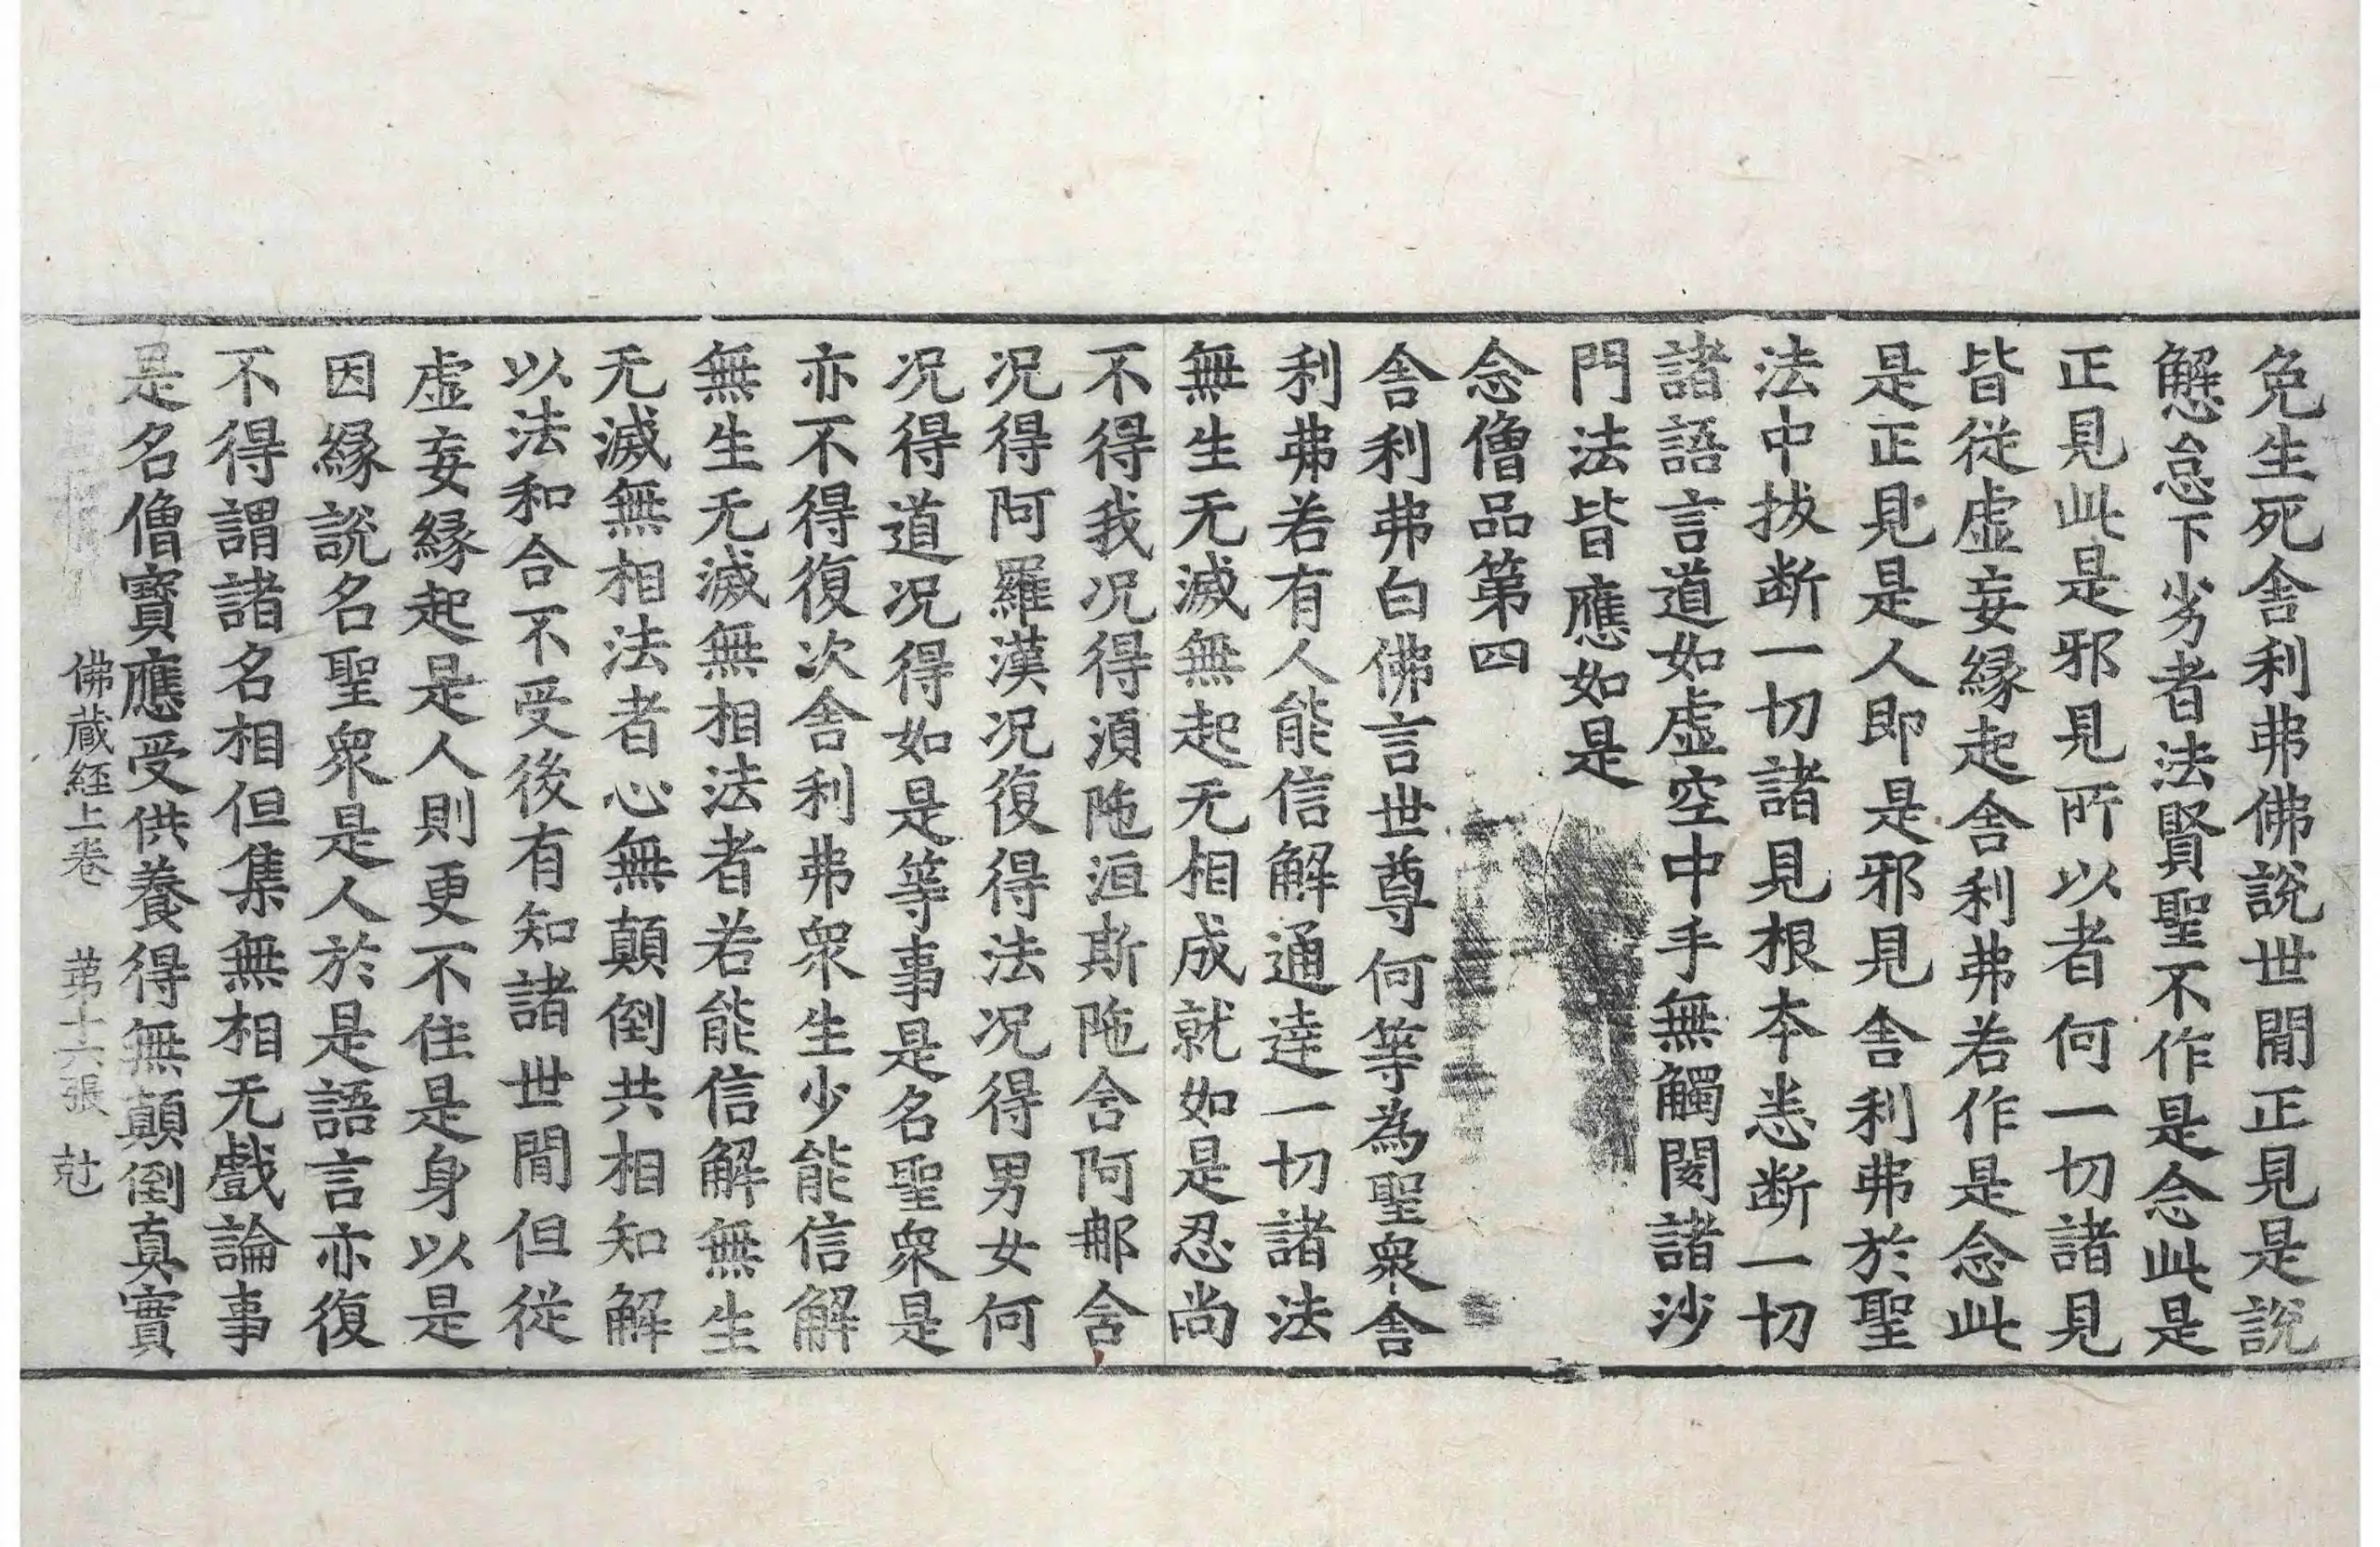 免生死舍利弗佛說世間正見是說
懈怠下劣者法賢聖不作是念此是
正見此是邪見所以者何一切諸見
皆從虛妄緣起舍利弗若作是念此
是正見是人即是邪見舍利弗於聖
法中拔断一切諸見根本悉断一切
諸語言道如虛空中手無觸閡諸沙
門法皆應如是
念僧品第四
舍利弗白佛言世尊何等為聖衆舍
利弗若有人能信解通達一切諸法
無生无滅無起无相成就如是忍尚
不得我况得湏陁洹斯陁含阿那含
况得阿羅漢况復得法况得男女何
况得道况得如是等事是名聖衆是
亦不得復次舍利弗衆生少能信解
無生无滅無相法者若能信解無生
无滅無相法者心無顛倒共相知解
以法和合不受後有知諸世間但從
虛妄緣起是人則更不住是身以是
因緣說名聖衆是人於是語言亦復
不得謂諸名相但集無相无戲論事
是名僧寶應受供養得無顛倒真實
佛蔵経上卷 苐十六張 尅